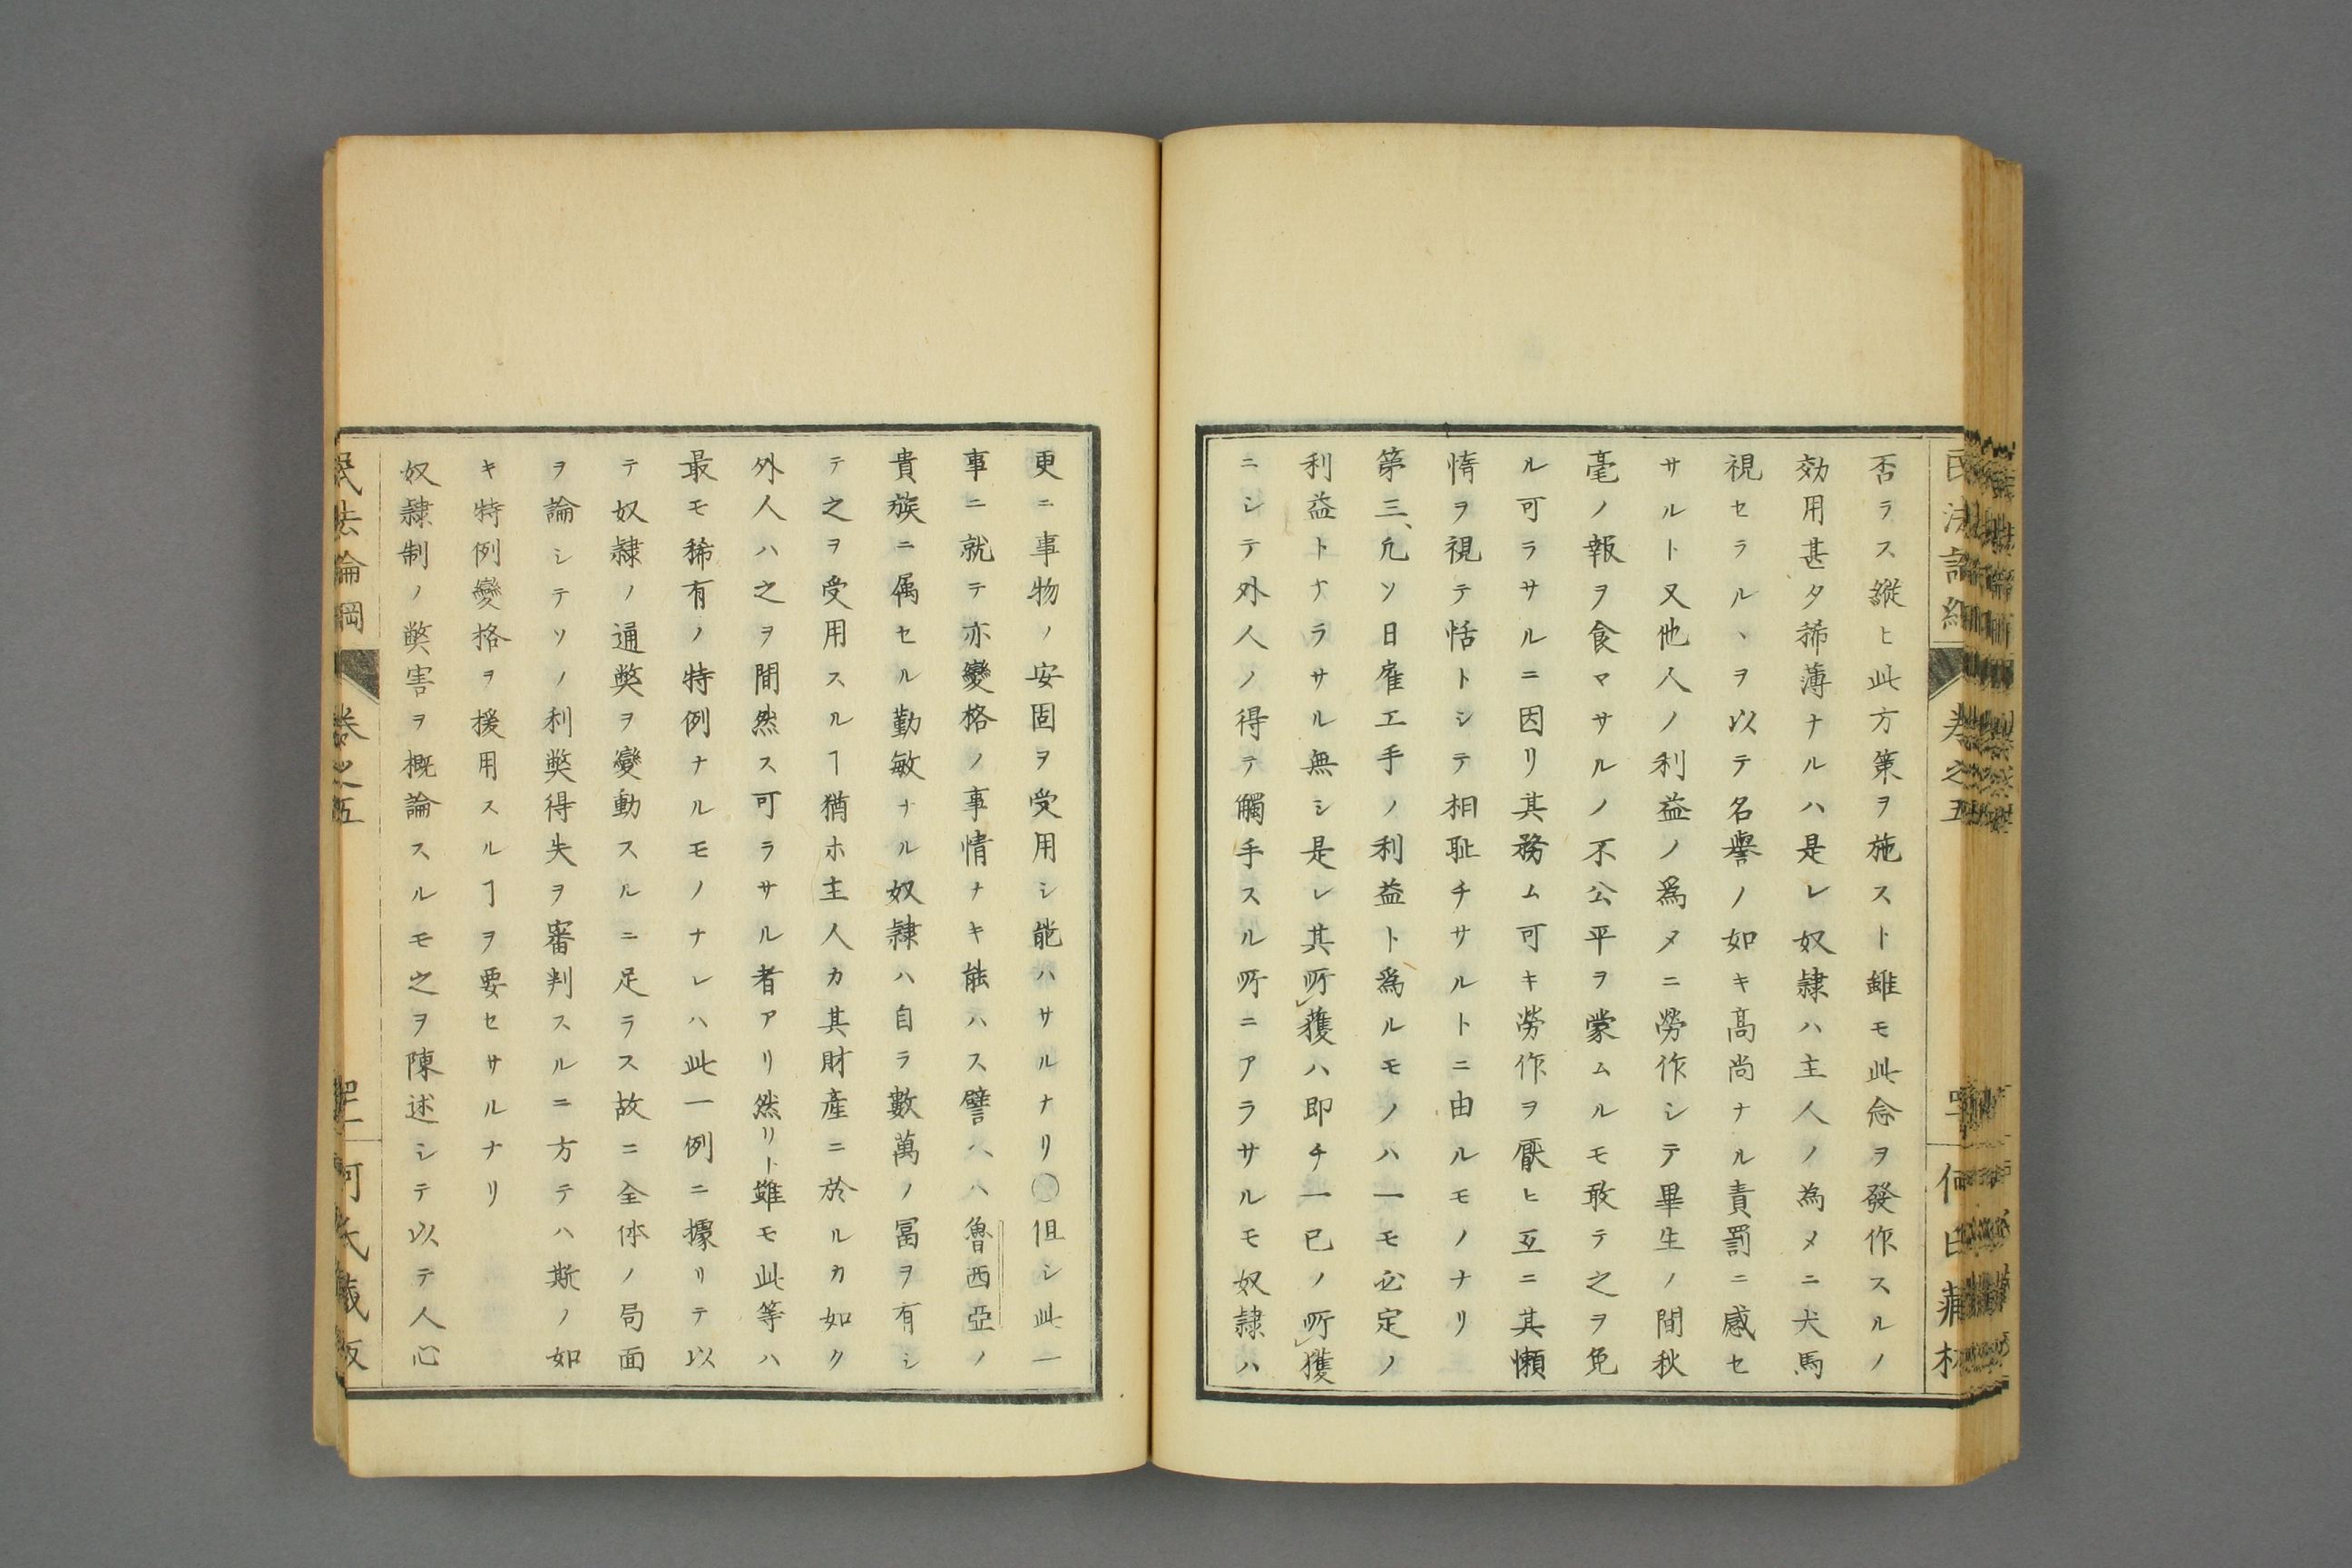 否ラス縱ヒ此方策ヲ施スト雖モ此念ヲ發作スルノ
効用甚タ菲薄ナルハ是レ奴隷ハ主人ノ為メニ犬馬
視セラルヽヲ以テ名譽ノ如キ髙尚ナル責罰ニ感セ
サルト又他人ノ利益ノ爲メニ勞作シテ畢生ノ間秋
毫ノ報ヲ食マサルノ不公平ヲ蒙ムルモ敢テ之ヲ免
ル可ラサルニ因リ其務ム可キ勞作ヲ厭ヒ互ニ其懶
惰ヲ視テ恬トシテ相耻チサルトニ由ルモノナリ
第三、凢ソ日雇工手ノ利益ト爲ルモノハ一モ必定ノ
利益トナラサル無シ是レ其所獲ハ即チ一已ノ所獲
ニシテ外人ノ得テ觸手スル所ニアラサルモ奴隷ハ
更ニ事物ノ安固ヲ受用シ能ハサルナリ○但シ此一
事ニ就テ亦變格ノ事情ナキ能ハス譬ヘハ魯西亞ノ
貴族ニ属セル勤敏ナル奴隷ハ自ラ數萬ノ冨ヲ有シ
テ之ヲ受用スルヿ猶ホ主人カ其財産ニ於ルカ如ク
外人ハ之ヲ間然ス可ラサル者アリ然リト雖モ此等ハ
最モ稀有ノ特例ナルモノナレハ此一例ニ據リテ以
テ奴隷ノ通獘ヲ變動スルニ足ラス故ニ全体ノ局面
ヲ論シテソノ利獘得失ヲ審判スルニ方テハ斯ノ如
キ特例變格ヲ援用スルヿヲ要セサルナリ
奴隷制ノ獘害ヲ概論スルモ之ヲ陳述シテ以テ人心
民法論綱 卷之五 何氏藏板